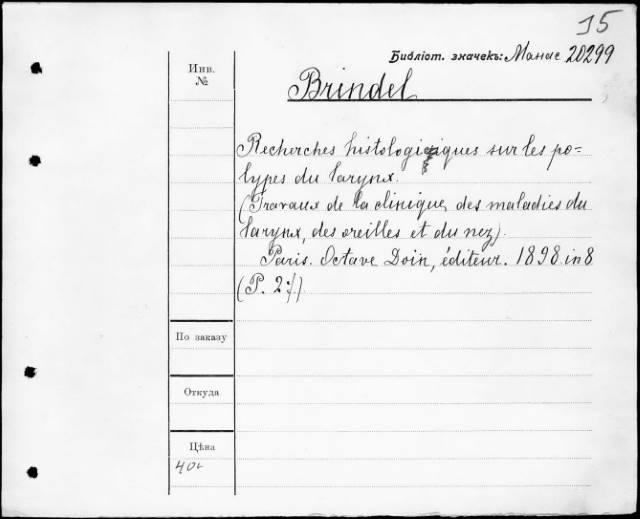 15
Библіот. значекъ: Манас 20299
Инв.
№
Brindel
Recherches histologiques sur les po=
lypes du larynx.
(Travaux de la clinique des maladies du
larynx, des oreilles et du nez).
Paris. Octave Doin, éditeur. 1898. in 8
(P. 27)
По заказу
Откуда
Цѣна
40к